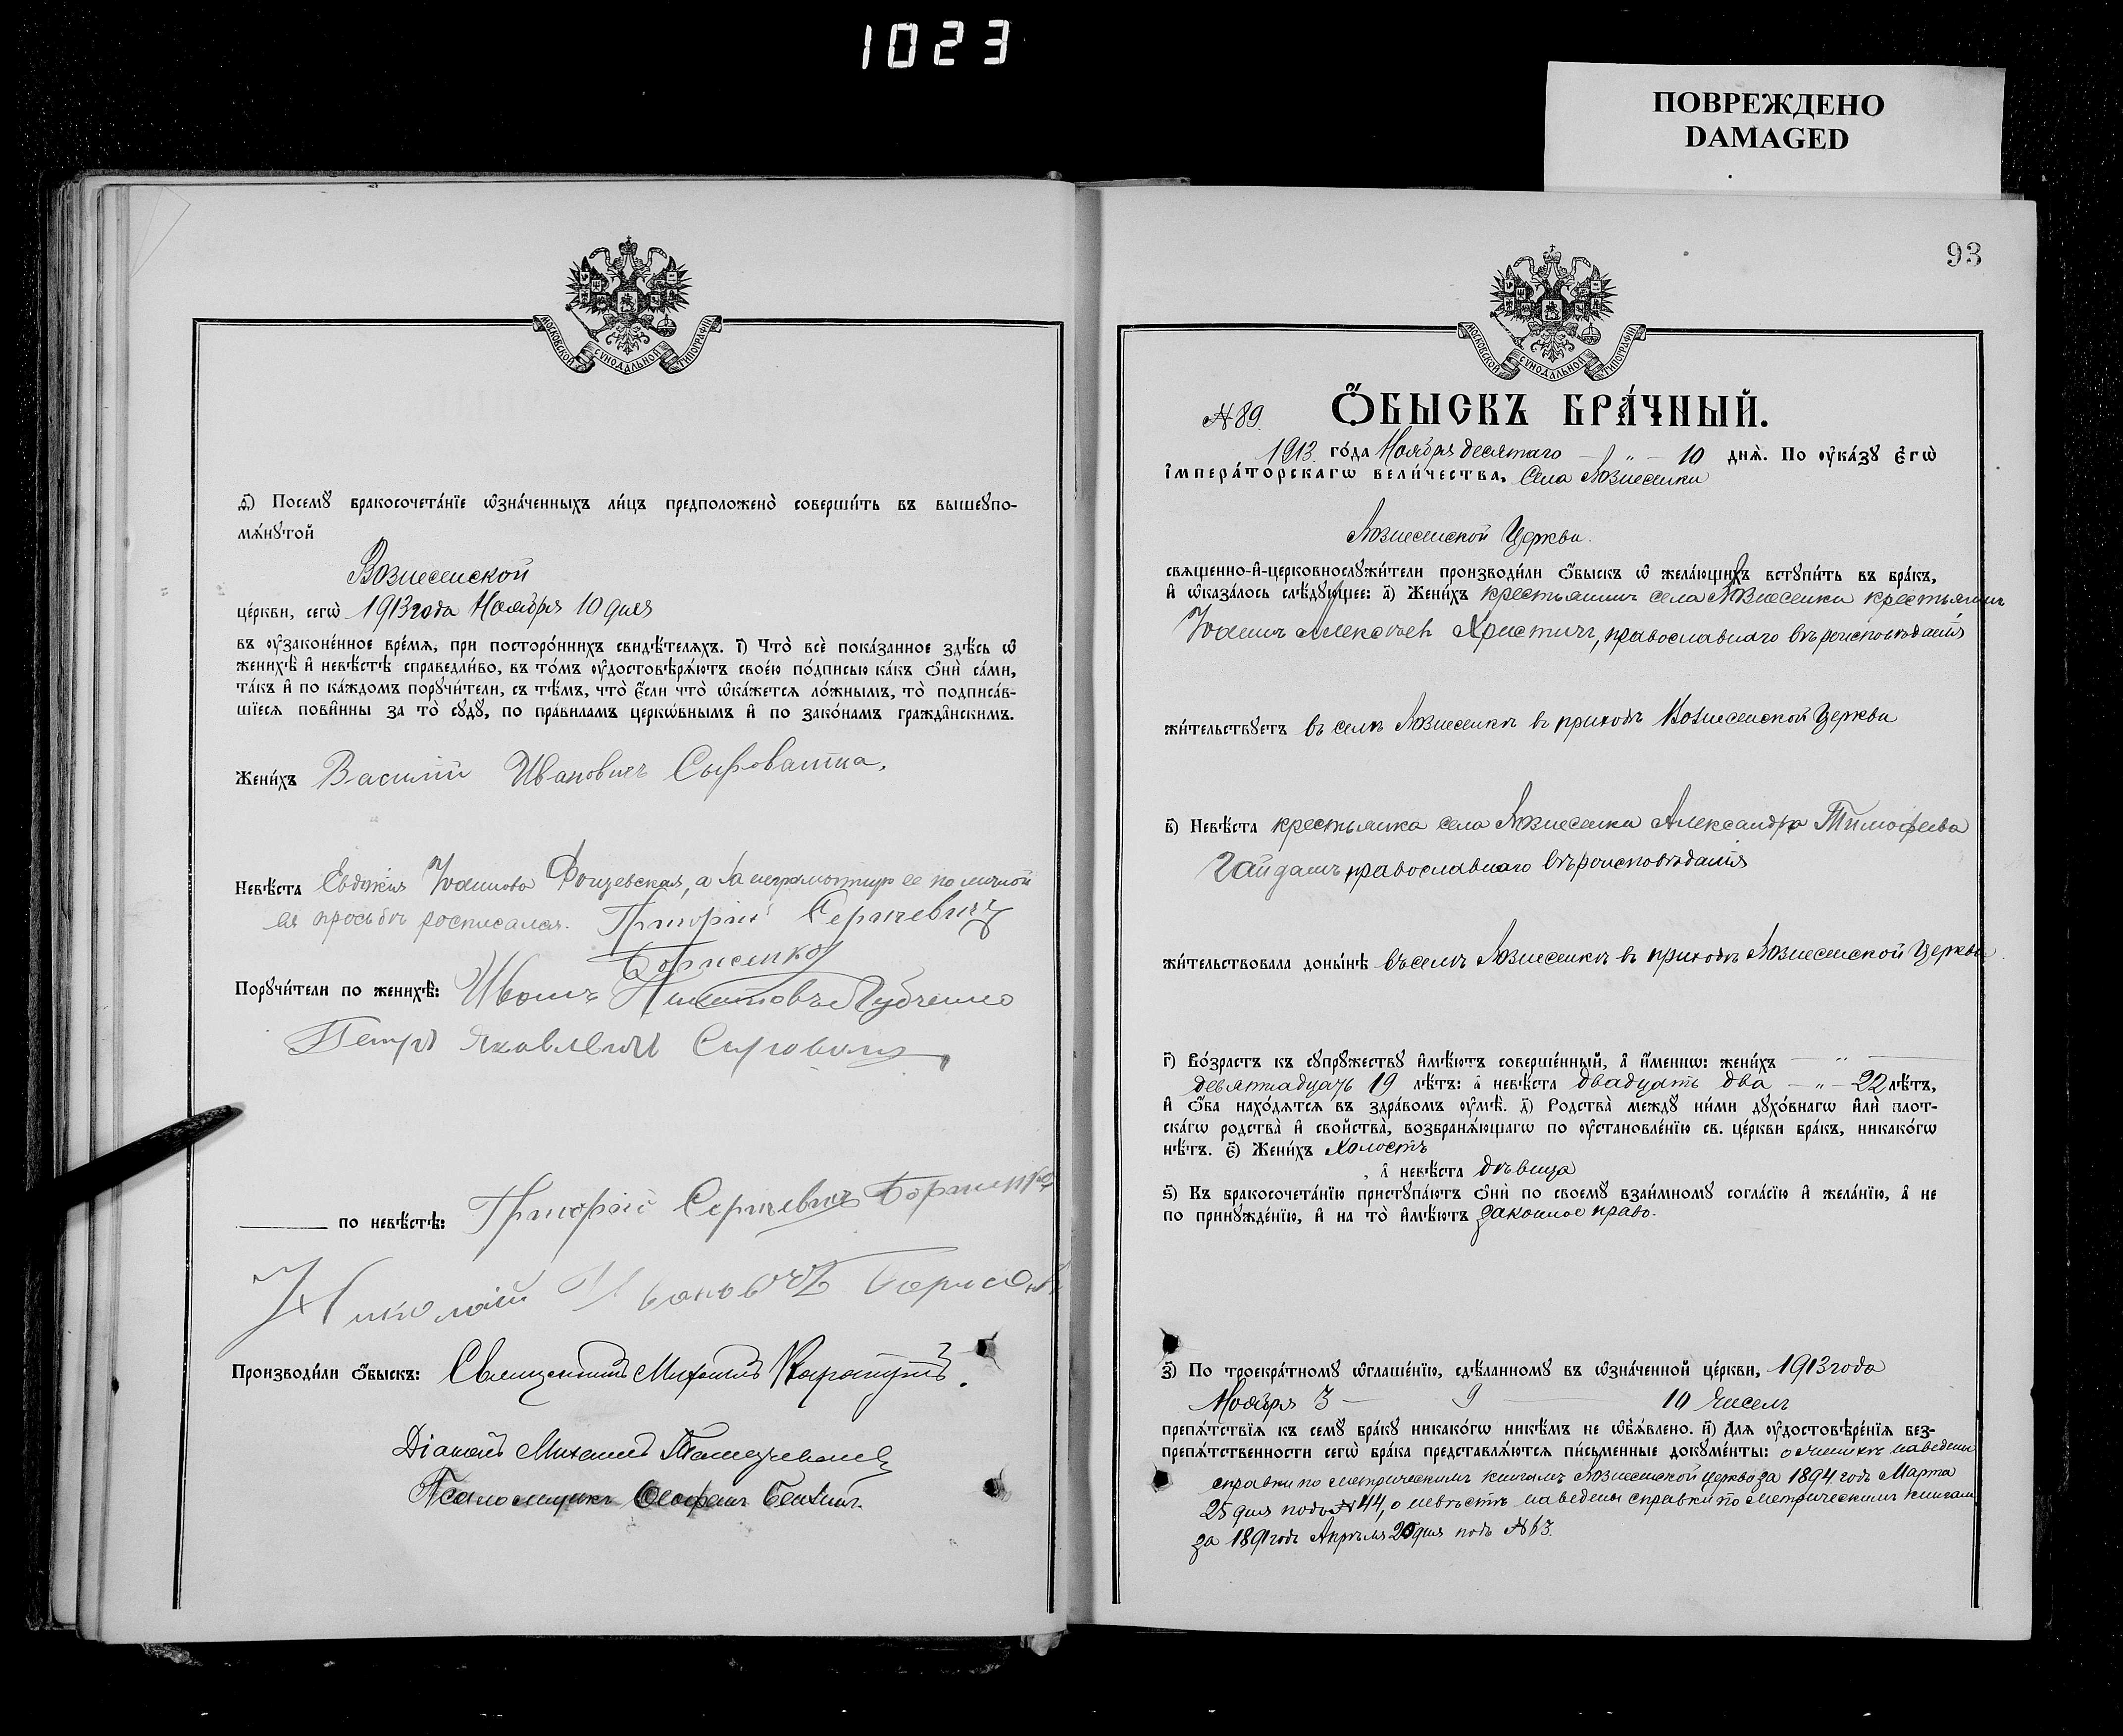 1023
ПОВРЕЖДЕНО
DAMAGED
МОСКОВСКОЙ СѴНОДАЛЬНОЙ ТИПОГРАФІИ
Ѳ҃) Посемꙋ̀ бракосочета́нїе ѡзна́ченныхъ ли́цъ предположено̀ соверши́ть въ вышеꙋпо-
мѧ́нꙋтой
Вознесенской
це́ркви, сегѡ̀ 1913 года Ноября 10 дня
въ ᲂу҆зако́ненное вре́мѧ, при посторо́ннихъ свидѣ́телѧхъ. І҃) Что̀ всѐ пока́занное здѣ́сь ѡ҆
женихѣ̀ и҆ невѣ́стѣ справедли́во, въ то́мъ ᲂу҆достовѣрѧ́ютъ свое́ю по́дписью ка́къ ѻ҆нѝ са́ми,
та́къ и҆ по ка́ждомъ порꙋчи́тели, съ тѣ́мъ, что̀ є҆́сли что̀ ѡ҆ка́жетсѧ ло́жнымъ, то̀ подписа́в-
шїесѧ пови́нны за то̀ сꙋдꙋ̀, по пра́виламъ церкѡ́внымъ и҆ по зако́намъ гражда́нскимъ.
Жени́хъ Василій Ивановичъ Сыроватка,
Невѣ́ста Евдокія Іоаннова а за неграмотную ее по личной
ея просьбѣ росписался. Григорій Сергѣевичъ
Борисенко
Порꙋчи́тели по женихѣ̀: Иванъ Губченко
Петръ Яковлевичъ
по невѣ́стѣ: Григорій Сергѣевичъ Борисенко
Николай Ивановичъ
Производи́ли ѻ҆́быскъ: Священникъ Михаилъ
Діаконъ Михаилъ
Псаломщикъ Ѳеофанъ
93
N 89. Ѻ҆́БЫСКЪ БРА́ЧНЫЙ.
1913. го́да Ноября десятаго — „ — 10 днѧ̀. По ᲂу҆ка́зꙋ є҆гѡ̀
і҆мпера́торскагѡ вели́чества, Села Вознесенки
Вознесенской Церкви.
свѧще́нно-и҆-церковнослꙋжи́тели производи́ли ѻ҆́быскъ ѡ҆ жела́ющихъ встꙋпи́ть въ бра́къ,
и҆ ѡ҆каза́лось слѣ́дꙋющее: а҃) Жени́хъ крестьянинъ села Вознесенки крестьянинъ
Іоаннъ Алексѣевъ Христичъ, православнаго вѣроисповѣданія
жи́тельствꙋетъ въ селѣ Вознесенкѣ въ приходѣ Вознесенской Церкви
в҃) Невѣ́ста крестьянка села Вознесенки Александра Тимофеева
Гайдашъ православнаго вѣроисповѣданія
жи́тельствовала доны́нѣ въ селѣ Вознесенкѣ въ приходѣ Вознесенской Церкви.
г҃) Во́зрастъ къ сꙋпрꙋ́жествꙋ и҆мѣ́ютъ соверше́нный, а҆ и҆́меннѡ: жени́хъ — „ —
девятнадцать 19 лѣ́тъ: а҆ невѣ́ста двадцать два — „ — 22 лѣ́тъ,
и҆ ѻ҆́ба нахо́дѧтсѧ въ здра́вомъ ᲂу҆мѣ̀. д҃) Родства̀ междꙋ̀ ни́ми дꙋхо́внагѡ и҆лѝ плот-
ска́гѡ родства̀ и҆ сво́йства, возбранѧ́ющагѡ по ᲂу҆становле́нїю св. це́ркви бра́къ, никако́гѡ
нѣ́тъ. є҃) Жени́хъ Холостъ
, а҆ невѣ́ста дѣвица
ѕ҃) Къ бракосочета́нїю пристꙋпа́ютъ ѻ҆нѝ по своемꙋ̀ взаи́мномꙋ согла́сїю и҆ жела́нїю, а҆ не
по принꙋжде́нїю, и҆ на то̀ и҆мѣ́ютъ законное право.
з҃) По троекра́тномꙋ ѡ҆глаше́нїю, сдѣ́ланномꙋ въ ѡ҆зна́ченной це́ркви, 1913 года
Ноября 3 — 9 — 10 чиселъ
препѧ́тствїѧ къ семꙋ̀ бра́кꙋ никако́гѡ никѣ́мъ не ѡ҆б̾ѧ́влено. и҃) Длѧ ᲂу҆достовѣре́нїѧ без-
препѧ́тственности сегѡ̀ бра́ка представлѧ́ютсѧ пи́сьменные докꙋме́нты: о женихѣ наведены
справки по метрическимъ книгамъ Вознесенской церкви за 1894 годъ Марта
25 дня подъ N 44, о невѣстѣ наведены справки по метрическимъ книгам
за 1891 годъ Апрѣля 25 дня подъ N 63.